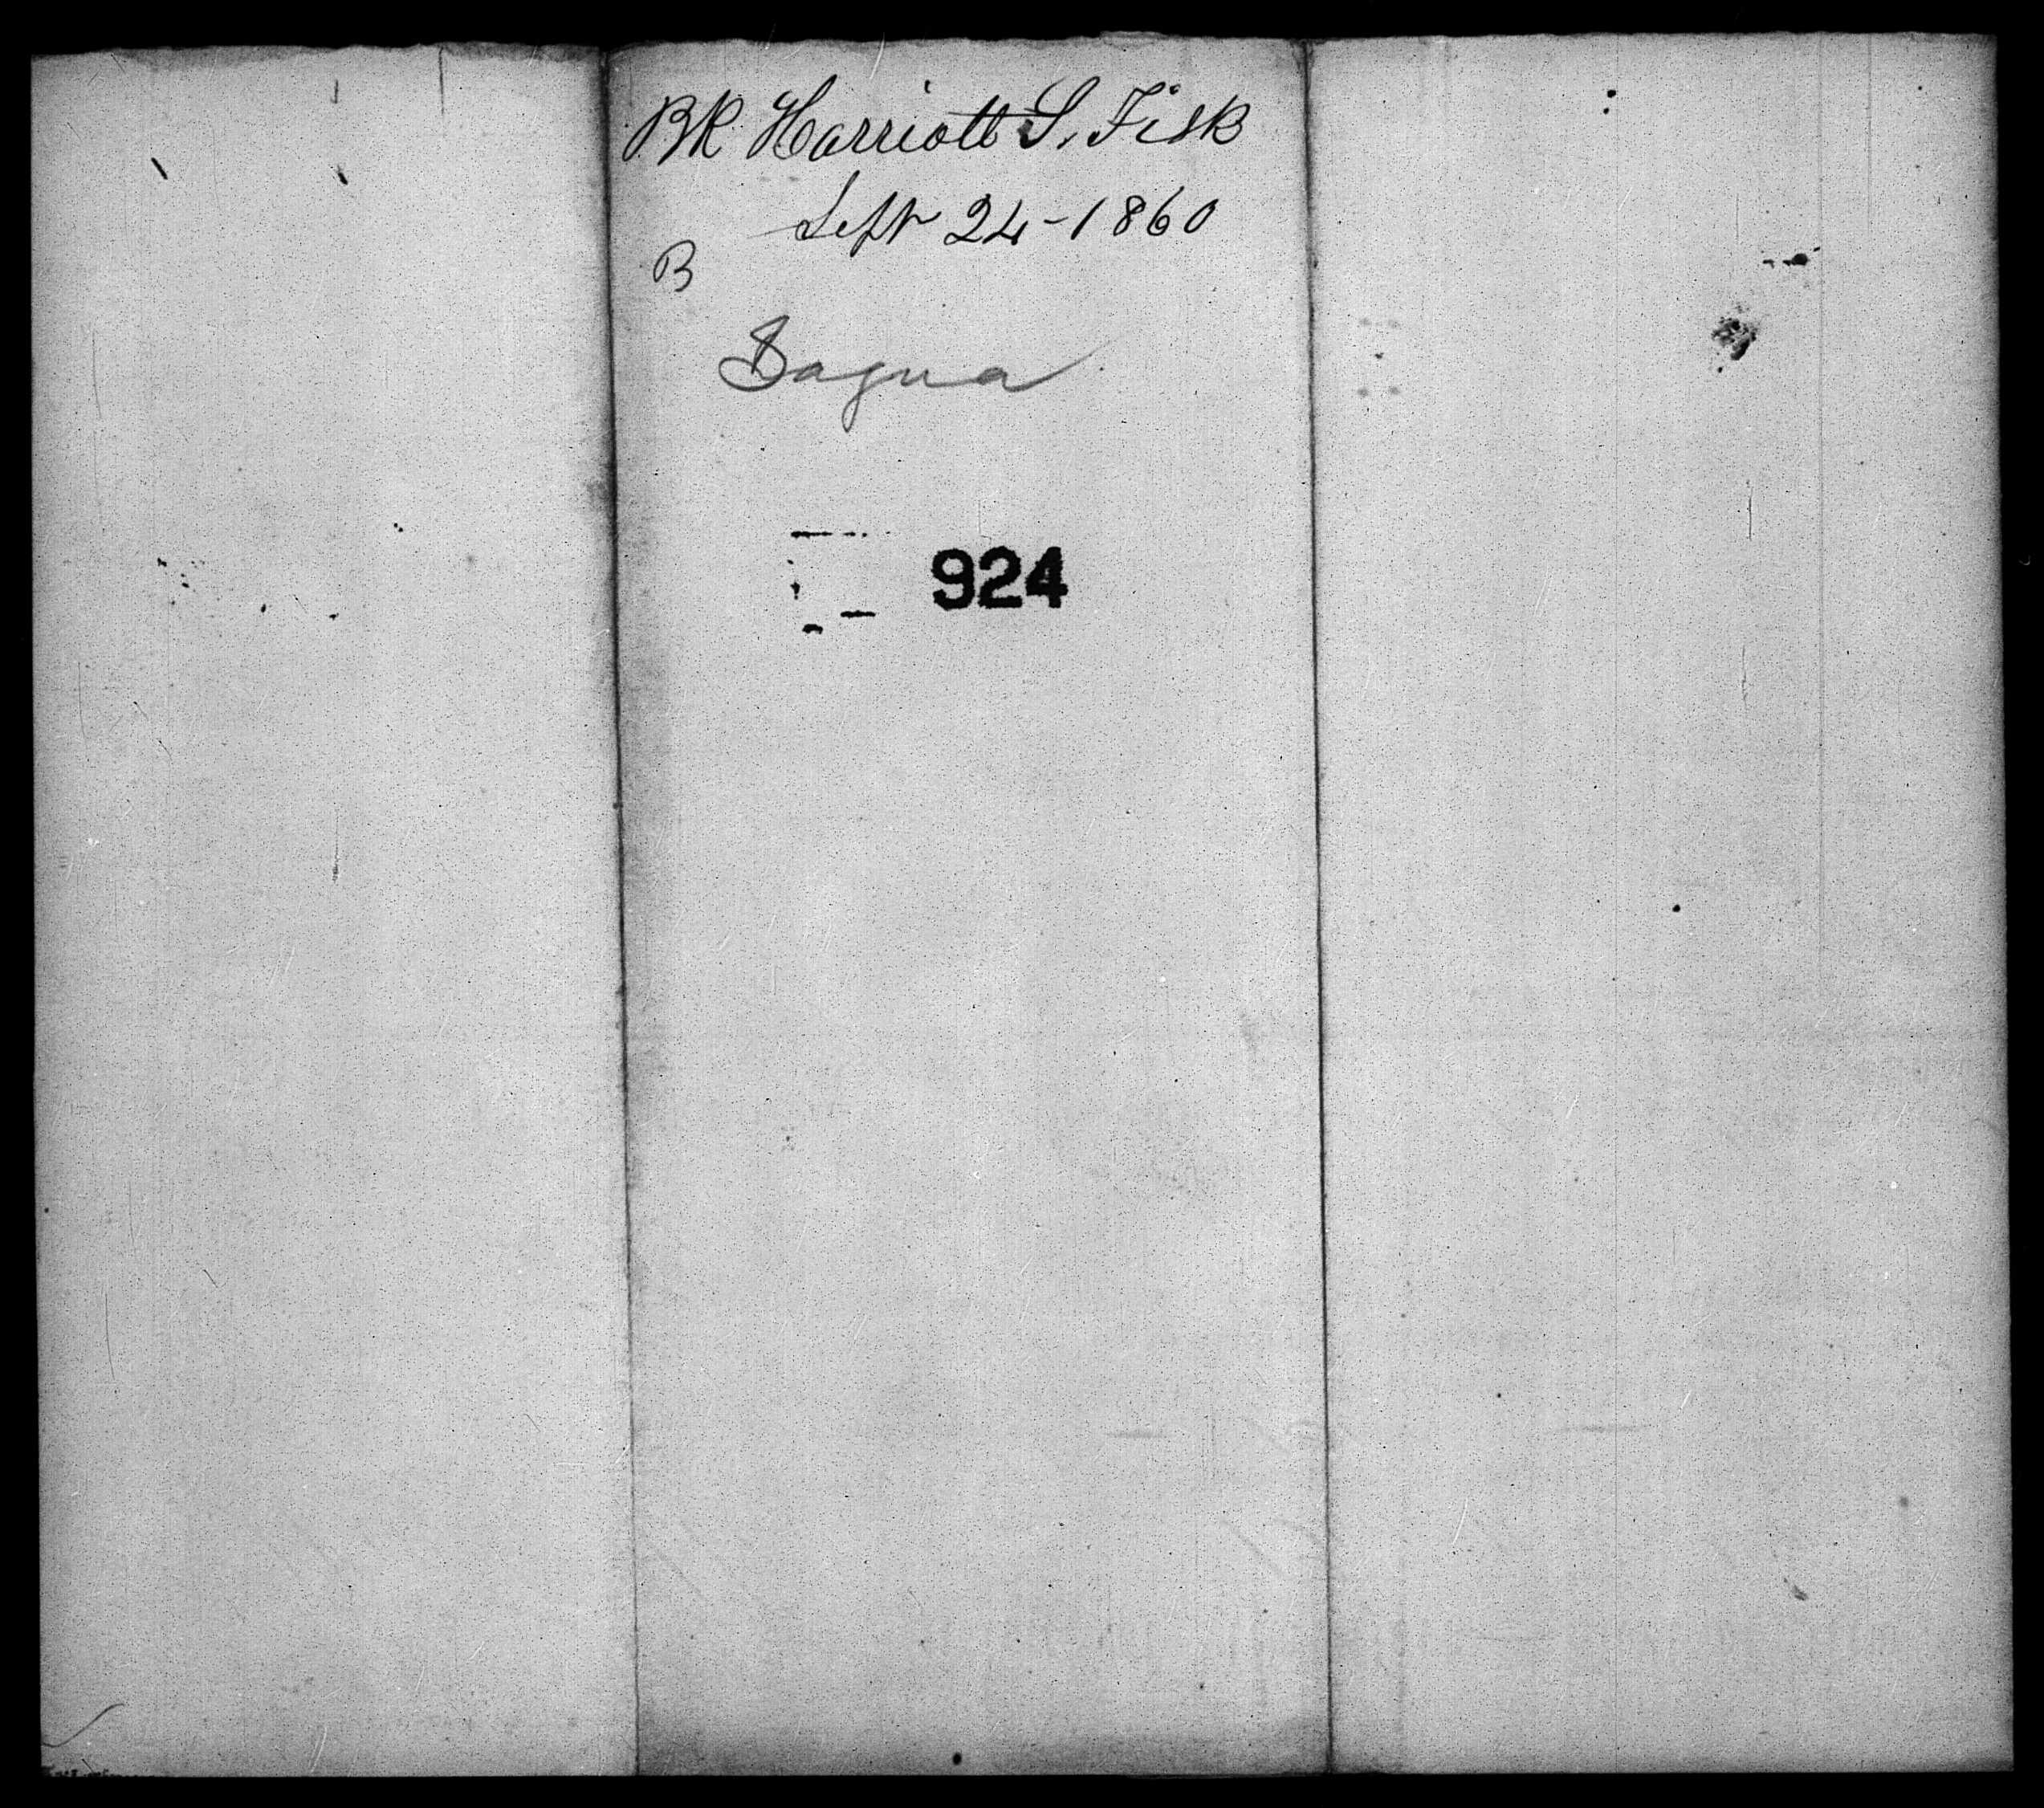 BK Harriott S. Fisk
Sept 24-1860
B
Sagua
924